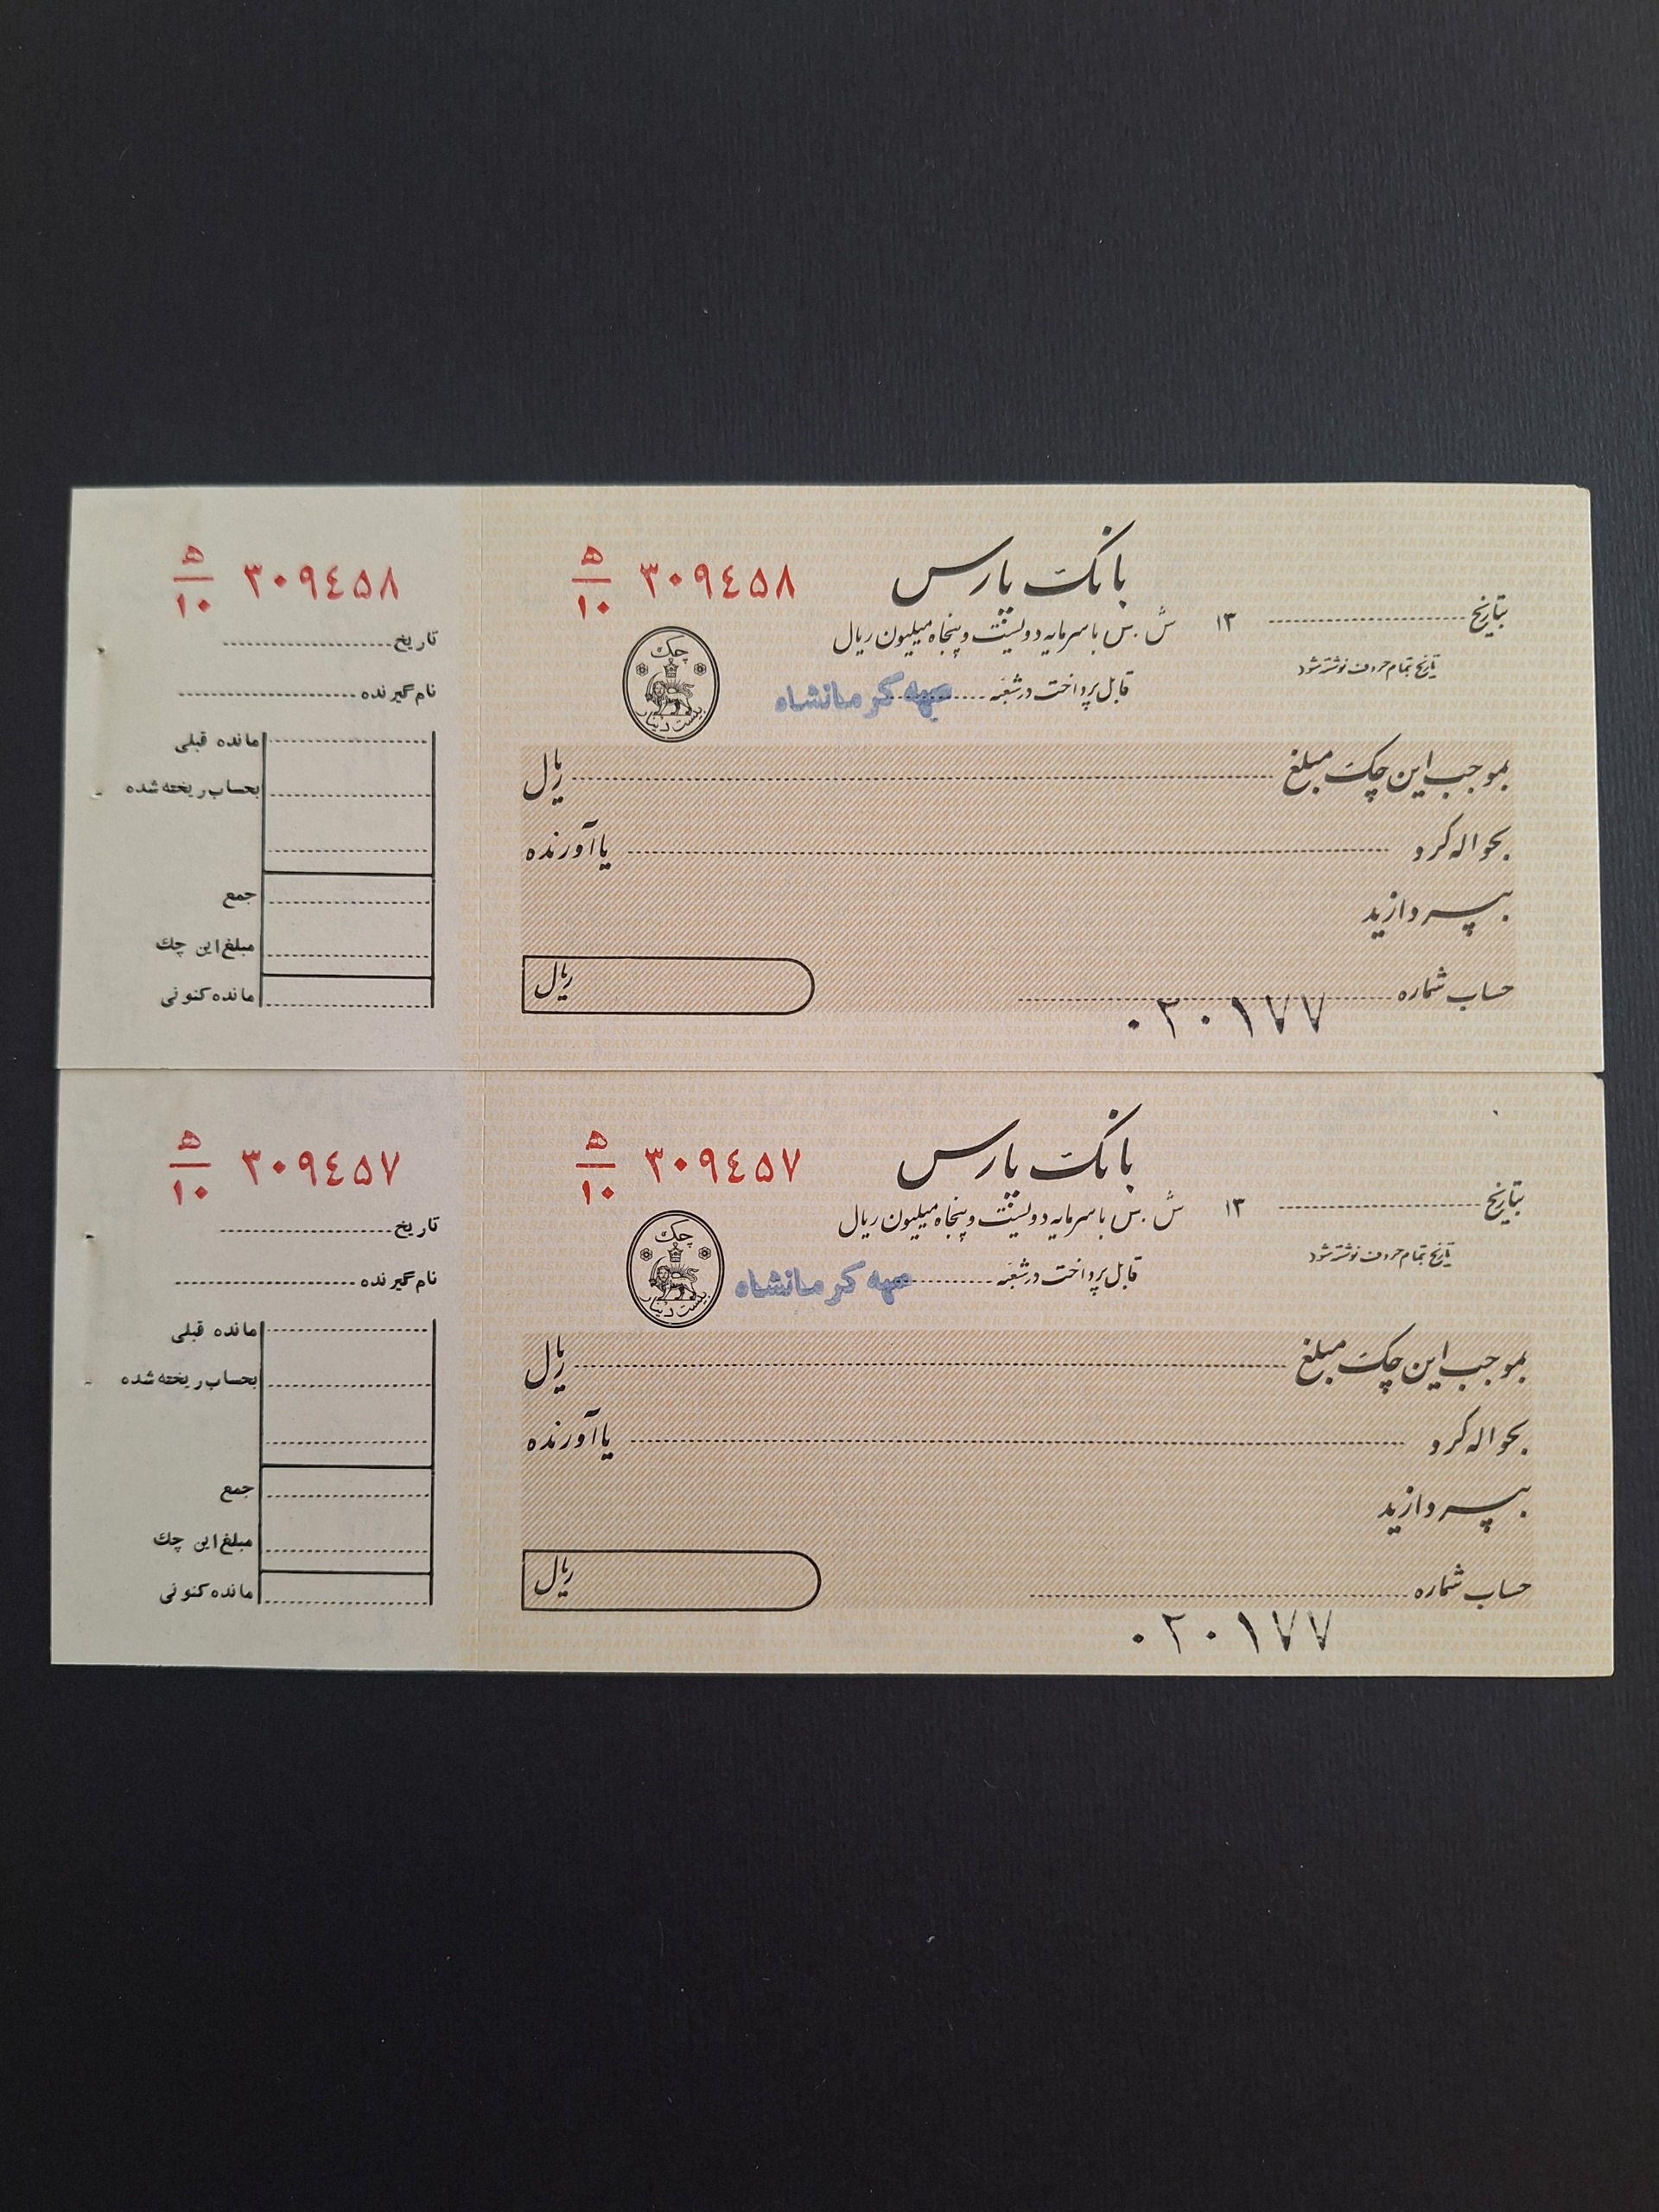 ۳۰۹٤۵۸ ه/۱۰
تاریخ
نام گیرنده
مانده قبلی
بحساب ریخته شده
جمع
مبلغ این چک
مانده کنونی
۳۰۹٤۵۸ ه/۱۰
بانک پارس
ش . س با سرمایه دویست و پنجاه میلیون ریال
بتاریخ ۱۳
تاریخ تمام حروف نوشته شود
قابل پرداخت در شعبه کرمانشاه
چک
بیست دینار
بموجب این چک مبلغ ریال
بحواله کرد یا آورنده
بپردازید
حساب شماره ۰۲۰۱۷۷
ریال
PARSBANK
۳۰۹٤۵۷ ه/۱۰
تاریخ
نام گیرنده
مانده قبلی
بحساب ریخته شده
جمع
مبلغ این چک
مانده کنونی
۳۰۹٤۵۷ ه/۱۰
بانک پارس
ش . س با سرمایه دویست و پنجاه میلیون ریال
بتاریخ ۱۳
تاریخ تمام حروف نوشته شود
قابل پرداخت در شعبه کرمانشاه
چک
بیست دینار
بموجب این چک مبلغ ریال
بحواله کرد یا آورنده
بپردازید
حساب شماره ۰۲۰۱۷۷
ریال
PARSBANK